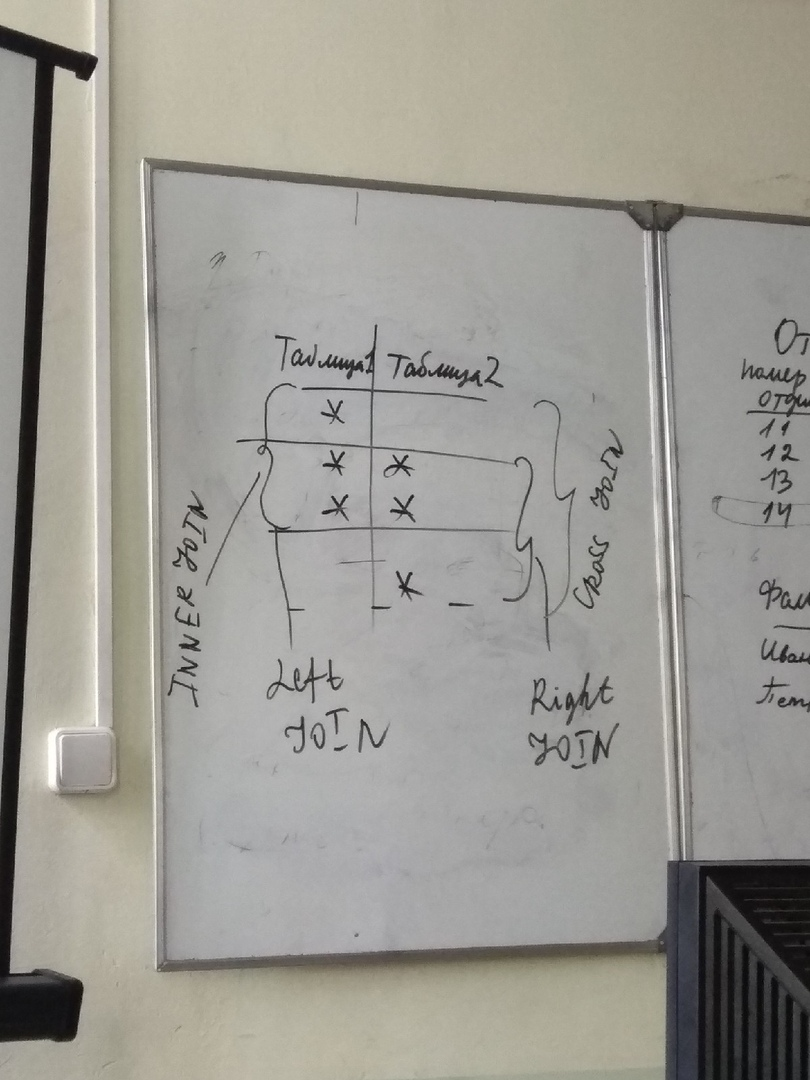 Таблица1 Таблица2
INNER JOIN
CRoss JOIN
Left
JOIN
Right
JOIN
От
Номер
11
12
13
14